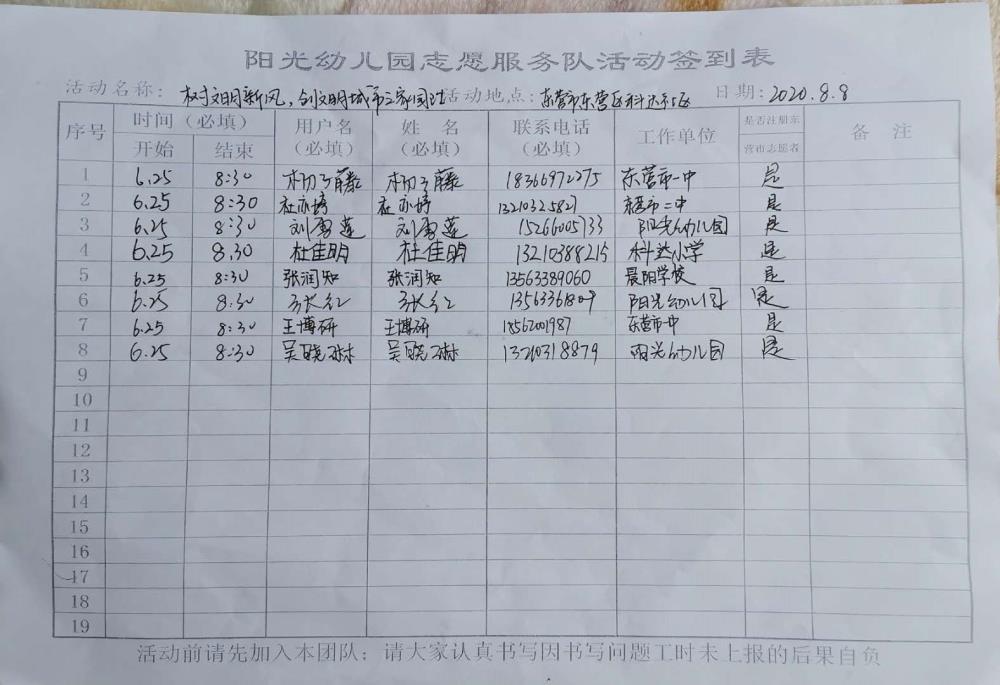 阳光幼儿园志愿服务队活动签到表
活动名称: 树文明新风,创文明城 活动地点: 东营市东营区科达社区 日期: 2020.8.8
序号 时间(必填) 用户名(必填) 姓 名(必填) 联系电话(必填) 工作单位 是否注册东营市志愿者 备 注
开始 结束
1 6.25 8:30 藤 藤 18366972275 东营市一中 是
2 6.25 8:30 杜亦婷 杜亦婷 13210325821 东营市二中 是
3 6.25 8:30 刘雪莲 刘雪莲 15266005733 阳光幼儿园 是
4 6.25 8.30 杜佳明 杜佳明 13210388215 科达小学 是
5 6.25 8:30 张润知 张润知 13563389060 晨阳学校 是
6 6.25 8:30 张红 张红 阳光幼儿园 是
7 6.25 8:30 王博研 王博研 18562001987 东营市一中 是
8 6.25 8:30 吴晓琳 吴晓琳 13210318879 阳光幼儿园 是
9
10
11
12
13
14
15
16
17
18
19
活动前请先加入本团队; 请大家认真书写因书写问题工时未上报的后果自负